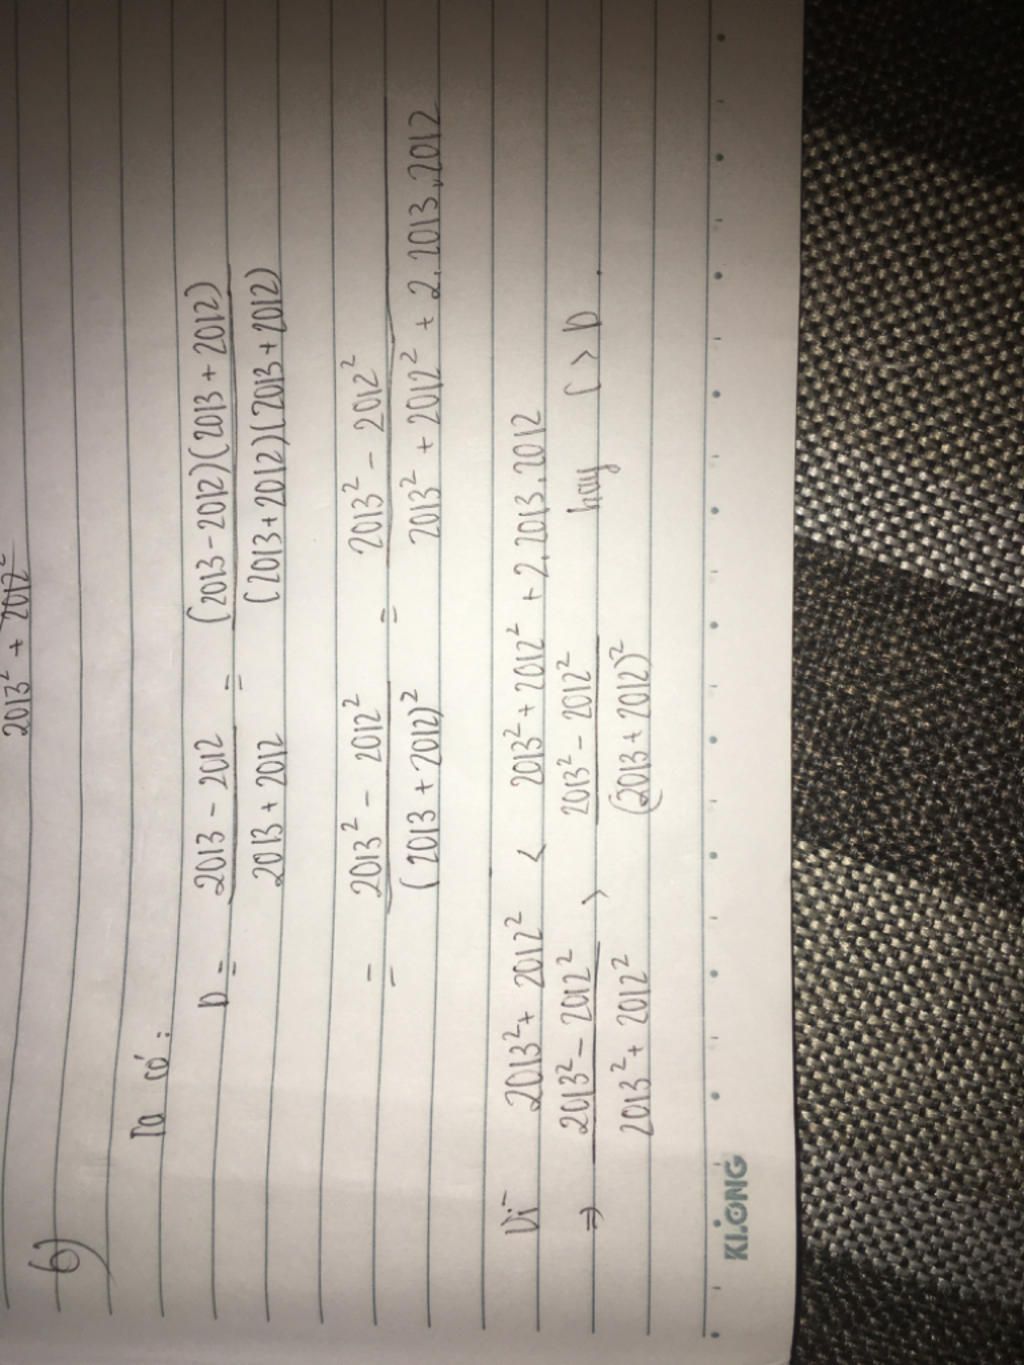 2013² + 2012²
6)
Ta có:
D = (2013 - 2012)/(2013 + 2012) = ((2013 - 2012)(2013 + 2012))/((2013 + 2012)(2013 + 2012))
= (2013² - 2012²)/((2013 + 2012)²) = (2013² - 2012²)/(2013² + 2012² + 2.2013.2012)
Vì 2013² + 2012² < 2013² + 2012² + 2.2013.2012
⇒ (2013² - 2012²)/(2013² + 2012²) > (2013² - 2012²)/((2013 + 2012)²) hay C > D.
KLONG